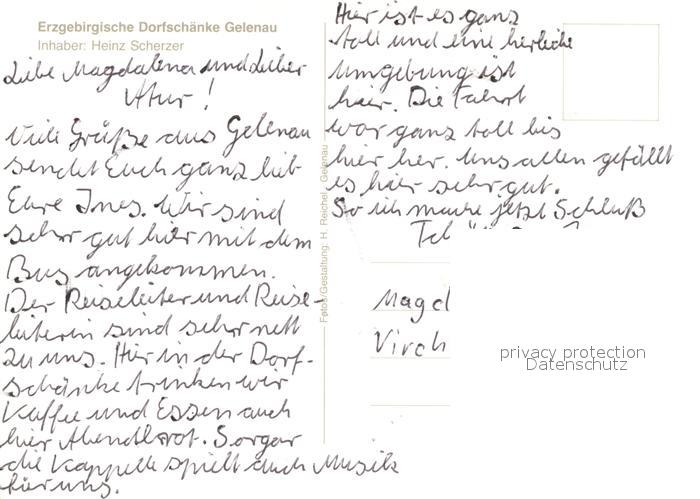 Erzgebirgische Dorfschänke Gelenau
Inhaber: Heinz Scherzer
Liebe Magdalena und Lieber
Atur!
Viele Grüße aus Gelenau
sendet Euch ganz lieb
Eure Ines. Wir sind
sehr gut hier mit dem
Bus angekommen.
Der Reiseleiter und Reise-
leiterin sind sehr nett
zu uns. Hier in der Dorf-
schänke trinken wir
Kaffee und Essen auch
hier Abendbrot. Sorgar
die Kappelle spielt auch Musik
für uns.
Hier ist es ganz
toll und eine herliche
Umgebung ist
hier. Die Fahrt
war ganz toll bis
hier her. Uns allen gefällt
es hier sehr gut.
So ich mache jetzt Schluß
Magd
Virch
Fotos/Gestaltung: H. Reichel, Gelenau
privacy protection
Datenschutz